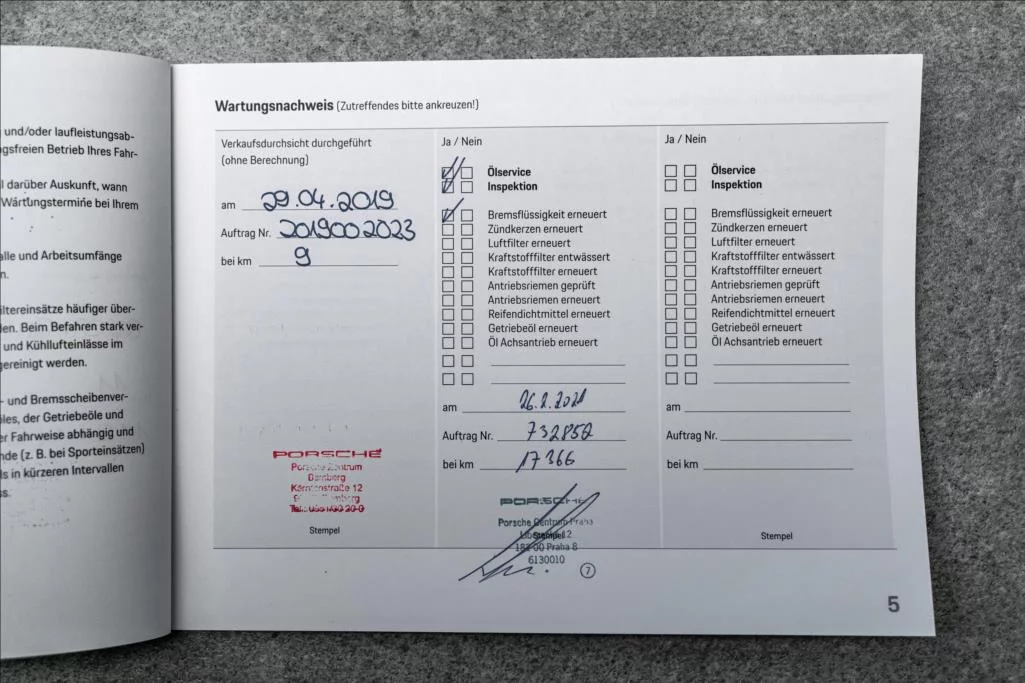 und/oder laufleistungsab-
gsfreien Betrieb Ihres Fahr-
l darüber Auskunft, wann
Wartungstermine bei Ihrem
alle und Arbeitsumfänge
n.
iltereinsätze häufiger über-
den. Beim Befahren stark ver-
und Kühllufteinlässe im
gereinigt werden.
- und Bremsscheibenver-
iles, der Getriebeöle und
er Fahrweise abhängig und
nde (z. B. bei Sporteinsätzen)
ls in kürzeren Intervallen
ss.
Wartungsnachweis (Zutreffendes bitte ankreuzen!)
Verkaufsdurchsicht durchgeführt
(ohne Berechnung)
am 29.04.2019
Auftrag Nr. 2019002023
bei km 9
PORSCHE
Porsche Zentrum
Bamberg
Kärntenstraße 12
Stempel
Ja / Nein
Ölservice
Inspektion
Bremsflüssigkeit erneuert
Zündkerzen erneuert
Luftfilter erneuert
Kraftstofffilter entwässert
Kraftstofffilter erneuert
Antriebsriemen geprüft
Antriebsriemen erneuert
Reifendichtmittel erneuert
Getriebeöl erneuert
Öl Achsantrieb erneuert
am 26.2.2021
Auftrag Nr. 732852
bei km 17366
PORSCHE
Porsche Centrum Praha
Stempel
182 00 Praha 8
6130010
7
Ja / Nein
Ölservice
Inspektion
Bremsflüssigkeit erneuert
Zündkerzen erneuert
Luftfilter erneuert
Kraftstofffilter entwässert
Kraftstofffilter erneuert
Antriebsriemen geprüft
Antriebsriemen erneuert
Reifendichtmittel erneuert
Getriebeöl erneuert
Öl Achsantrieb erneuert
am
Auftrag Nr.
bei km
Stempel
5